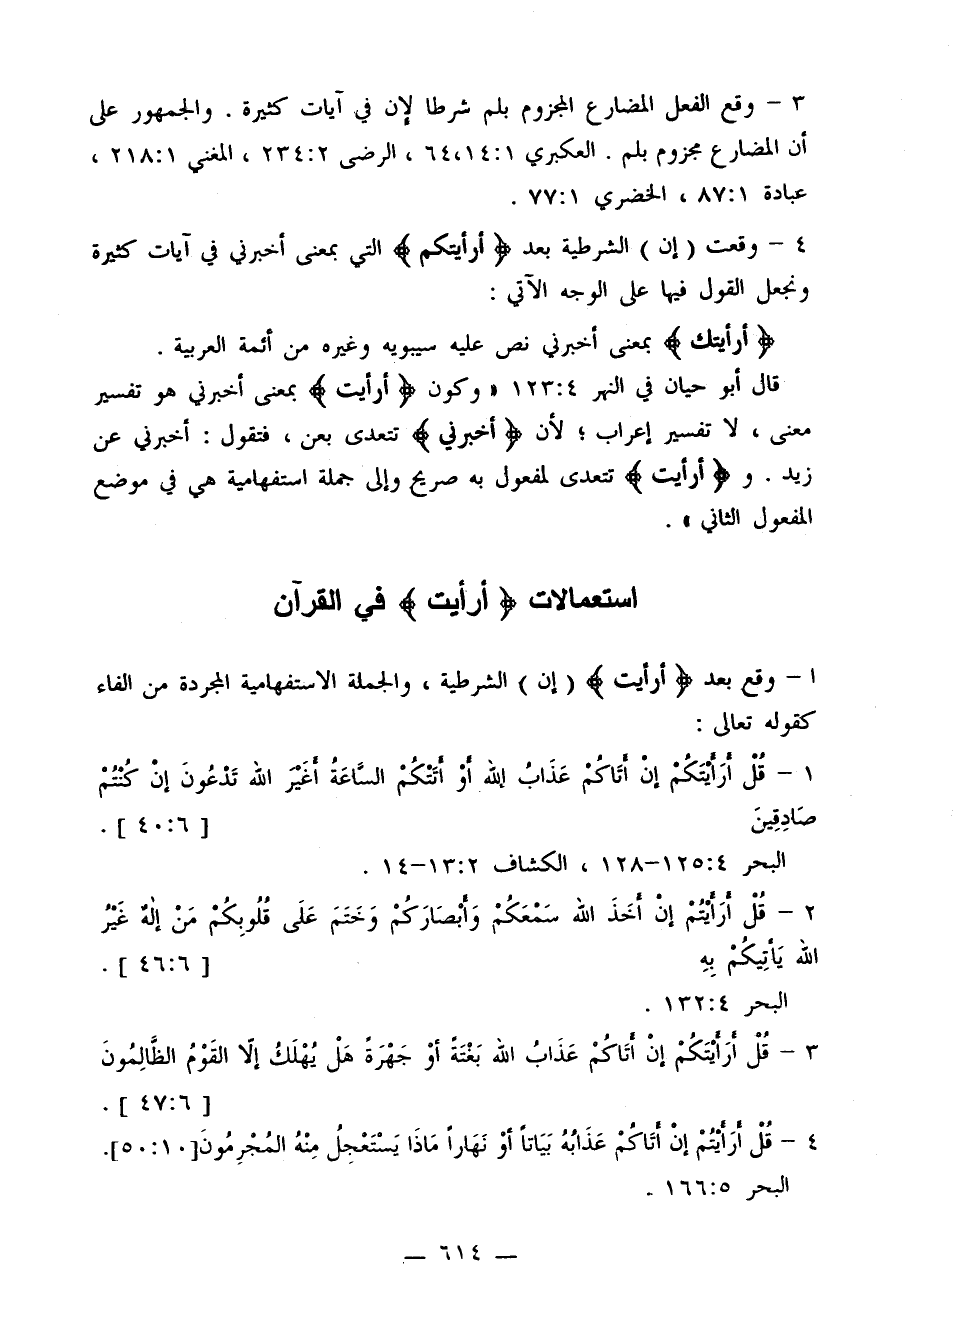 ٣ – وقع الفعل المضارع المجزوم بلم شرطا لإن في آيات كثيرة . والجمهور على
أن المضارع مجزوم بلم . العكبري ١:١٤،٦٤ ، الرضى ٢:٢٣٤ ، المغني ١:٢١٨ ،
عبادة ١:٨٧ ، الخضري ١:٧٧ .
٤ – وقعت ( إن ) الشرطية بعد ﴿ أرأيتكم ﴾ التي بمعنى أخبرني في آيات كثيرة
ونجعل القول فيها على الوجه الآتي :
﴿ أرأيتك ﴾ بمعنى أخبرني نص عليه سيبويه وغيره من أئمة العربية .
قال أبو حيان في النهر ٤:١٢٣ « وكون ﴿ أرأيت ﴾ بمعنى أخبرني هو تفسير
معنى ، لا تفسير إعراب ؛ لأن ﴿ أخبرني ﴾ تتعدى بعن ، فتقول : أخبرني عن
زيد . و ﴿ أرأيت ﴾ تتعدى لمفعول به صريح وإلى جملة استفهامية هي في موضع
المفعول الثاني » .
استعمالات ﴿ أرأيت ﴾ في القرآن
١ – وقع بعد ﴿ أرأيت ﴾ ( إن ) الشرطية ، والجملة الاستفهامية المجردة من الفاء
كقوله تعالى :
١ – قُلْ أَرَأَيْتَكُمْ إِنْ أَتَاكُمْ عَذَابُ الله أَوْ أَتَتْكُمْ السَّاعَةُ أَغَيْرَ الله تَدْعُونَ إِنْ كُنْتُمْ
صَادِقِينَ [ ٦:٤٠ ] .
البحر ٤:١٢٥–١٢٨ ، الكشاف ٢:١٣–١٤ .
٢ – قُلْ أَرَأَيْتُمْ إِنْ أَخَذَ الله سَمْعَكُمْ وَأَبْصَارَكُمْ وَخَتَمَ عَلَى قُلُوبِكُمْ مَنْ إِلٰهٌ غَيْرُ
الله يَأْتِيكُمْ بِهِ [ ٦:٤٦ ] .
البحر ٤:١٣٢ .
٣ – قُلْ أَرَأَيْتَكُمْ إِنْ أَتَاكُمْ عَذَابُ الله بَغْتَةً أَوْ جَهْرَةً هَلْ يُهْلَكُ إِلَّا القَوْمُ الظَّالِمُونَ
[ ٦:٤٧ ] .
٤ – قُلْ أَرَأَيْتُمْ إِنْ أَتَاكُمْ عَذَابُهُ بَيَاتاً أَوْ نَهَاراً مَاذَا يَسْتَعْجِلُ مِنْهُ المُجْرِمُونَ[١٠:٥٠].
البحر ٥:١٦٦ .
— ٦١٤ —